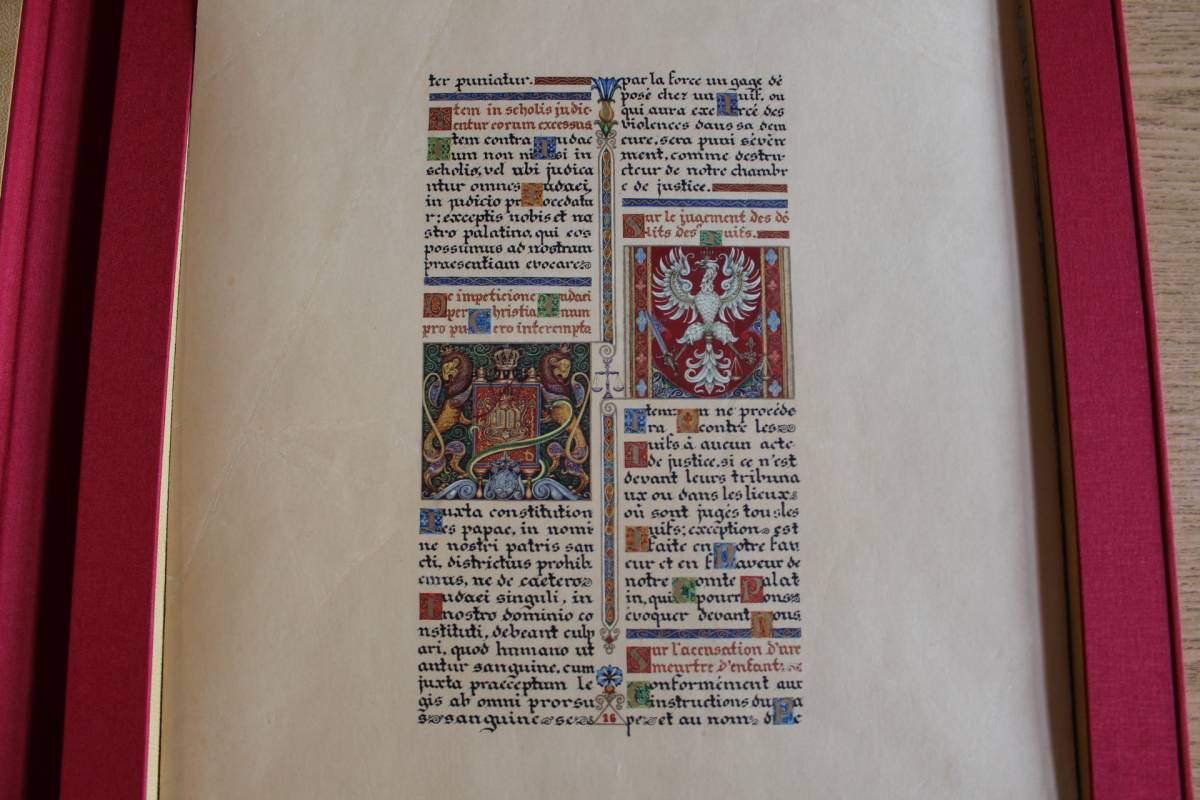 ter puniatur.
Item in scholis judic-
entur eorum excessus
Item contra Iudae
um non nisi in
scholis, vel ubi judica
ntur omnes Iudaei,
in judicio procedatu
r; exceptis nobis et no
stro palatino, qui eos
possumus ad nostram
praesentiam evocare
De impeticione Iudaei
per Christianum
pro puero interempto
Iuxta constitution
es papae, in nomi
ne nostri patris san
cti, districtius prohib
emus, ne de caetero
Iudaei singuli, in
nostro dominio co
nstituti, debeant culp
ari, quod humano ut
antur sanguine, cum
juxta praeceptum le
gis ab omni prorsu
s sanguine se
16
par la force un gage dé
posé chez un Juif, ou
qui aura exercé des
violences dans sa dem
eure, sera puni sévère
ment, comme destru-
cteur de notre chambr
e de justice.
Sur le jugement des dé
lits des Juifs.
Item on ne procéde
ra contre les
Juifs à aucun acte
de justice, si ce n'est
devant leurs tribuna
ux ou dans les lieux
où sont jugés tous les
Juifs; exception est
faite en notre fav
eur et en faveur de
notre Comte Palat
in, qui pourrons
évoquer devant nous
Sur l'accusation d'un
meurtre d'enfant
Conformément aux
instructions du Pa
pe et au nom de